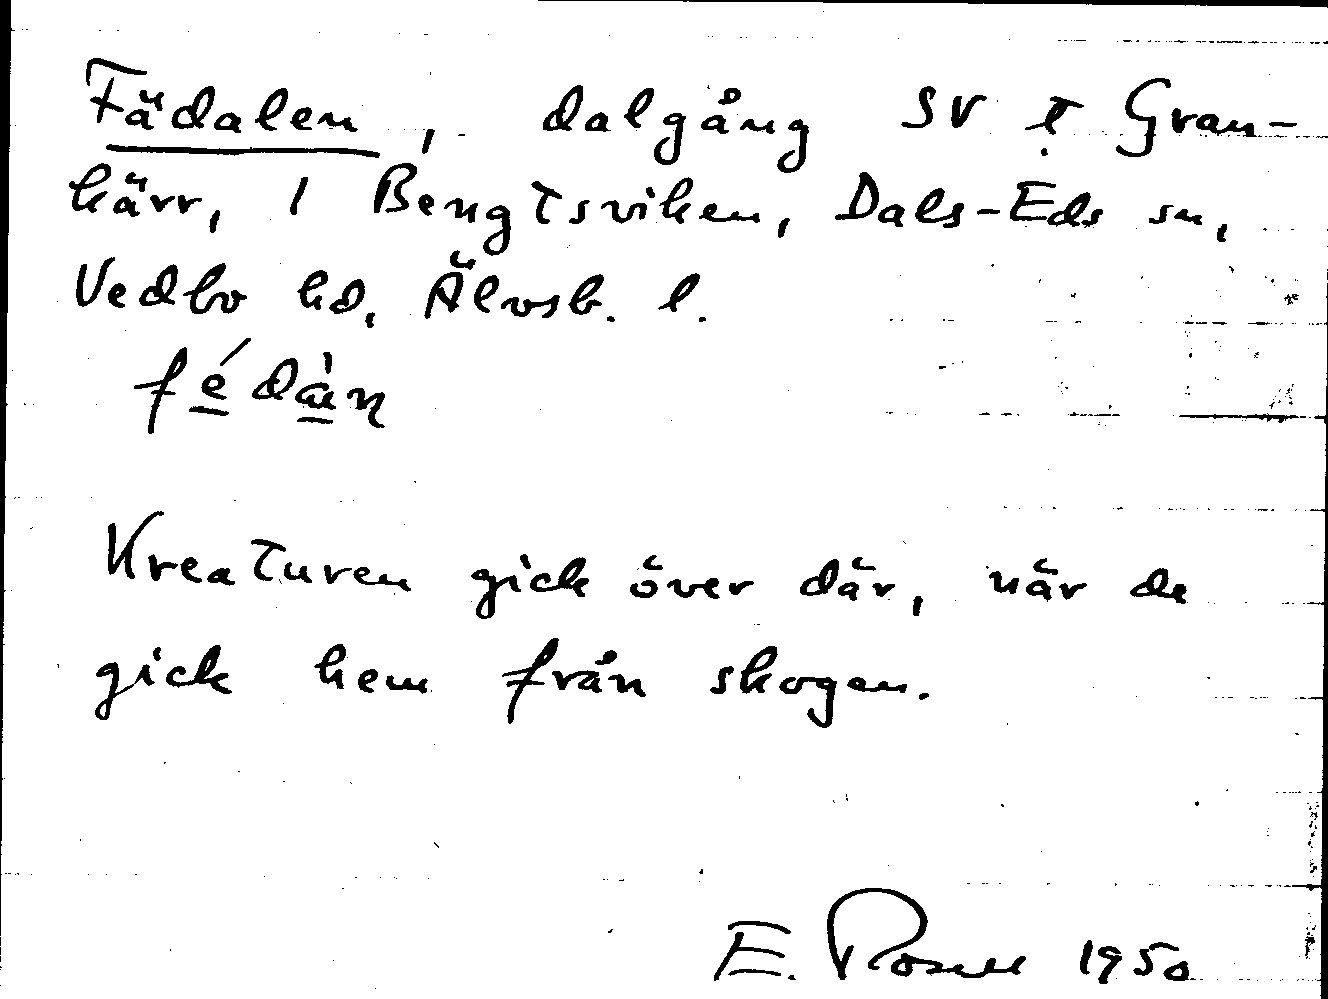 Fädalen, dalgång SV t. Gran-
kärr, 1 Bengtsviken, Dals-Eds sn,
Vedbo hd, Älvsb. l.
fédàn
Kreaturen gick över där, när de
gick hem från skogen.
E. Rosell 1950